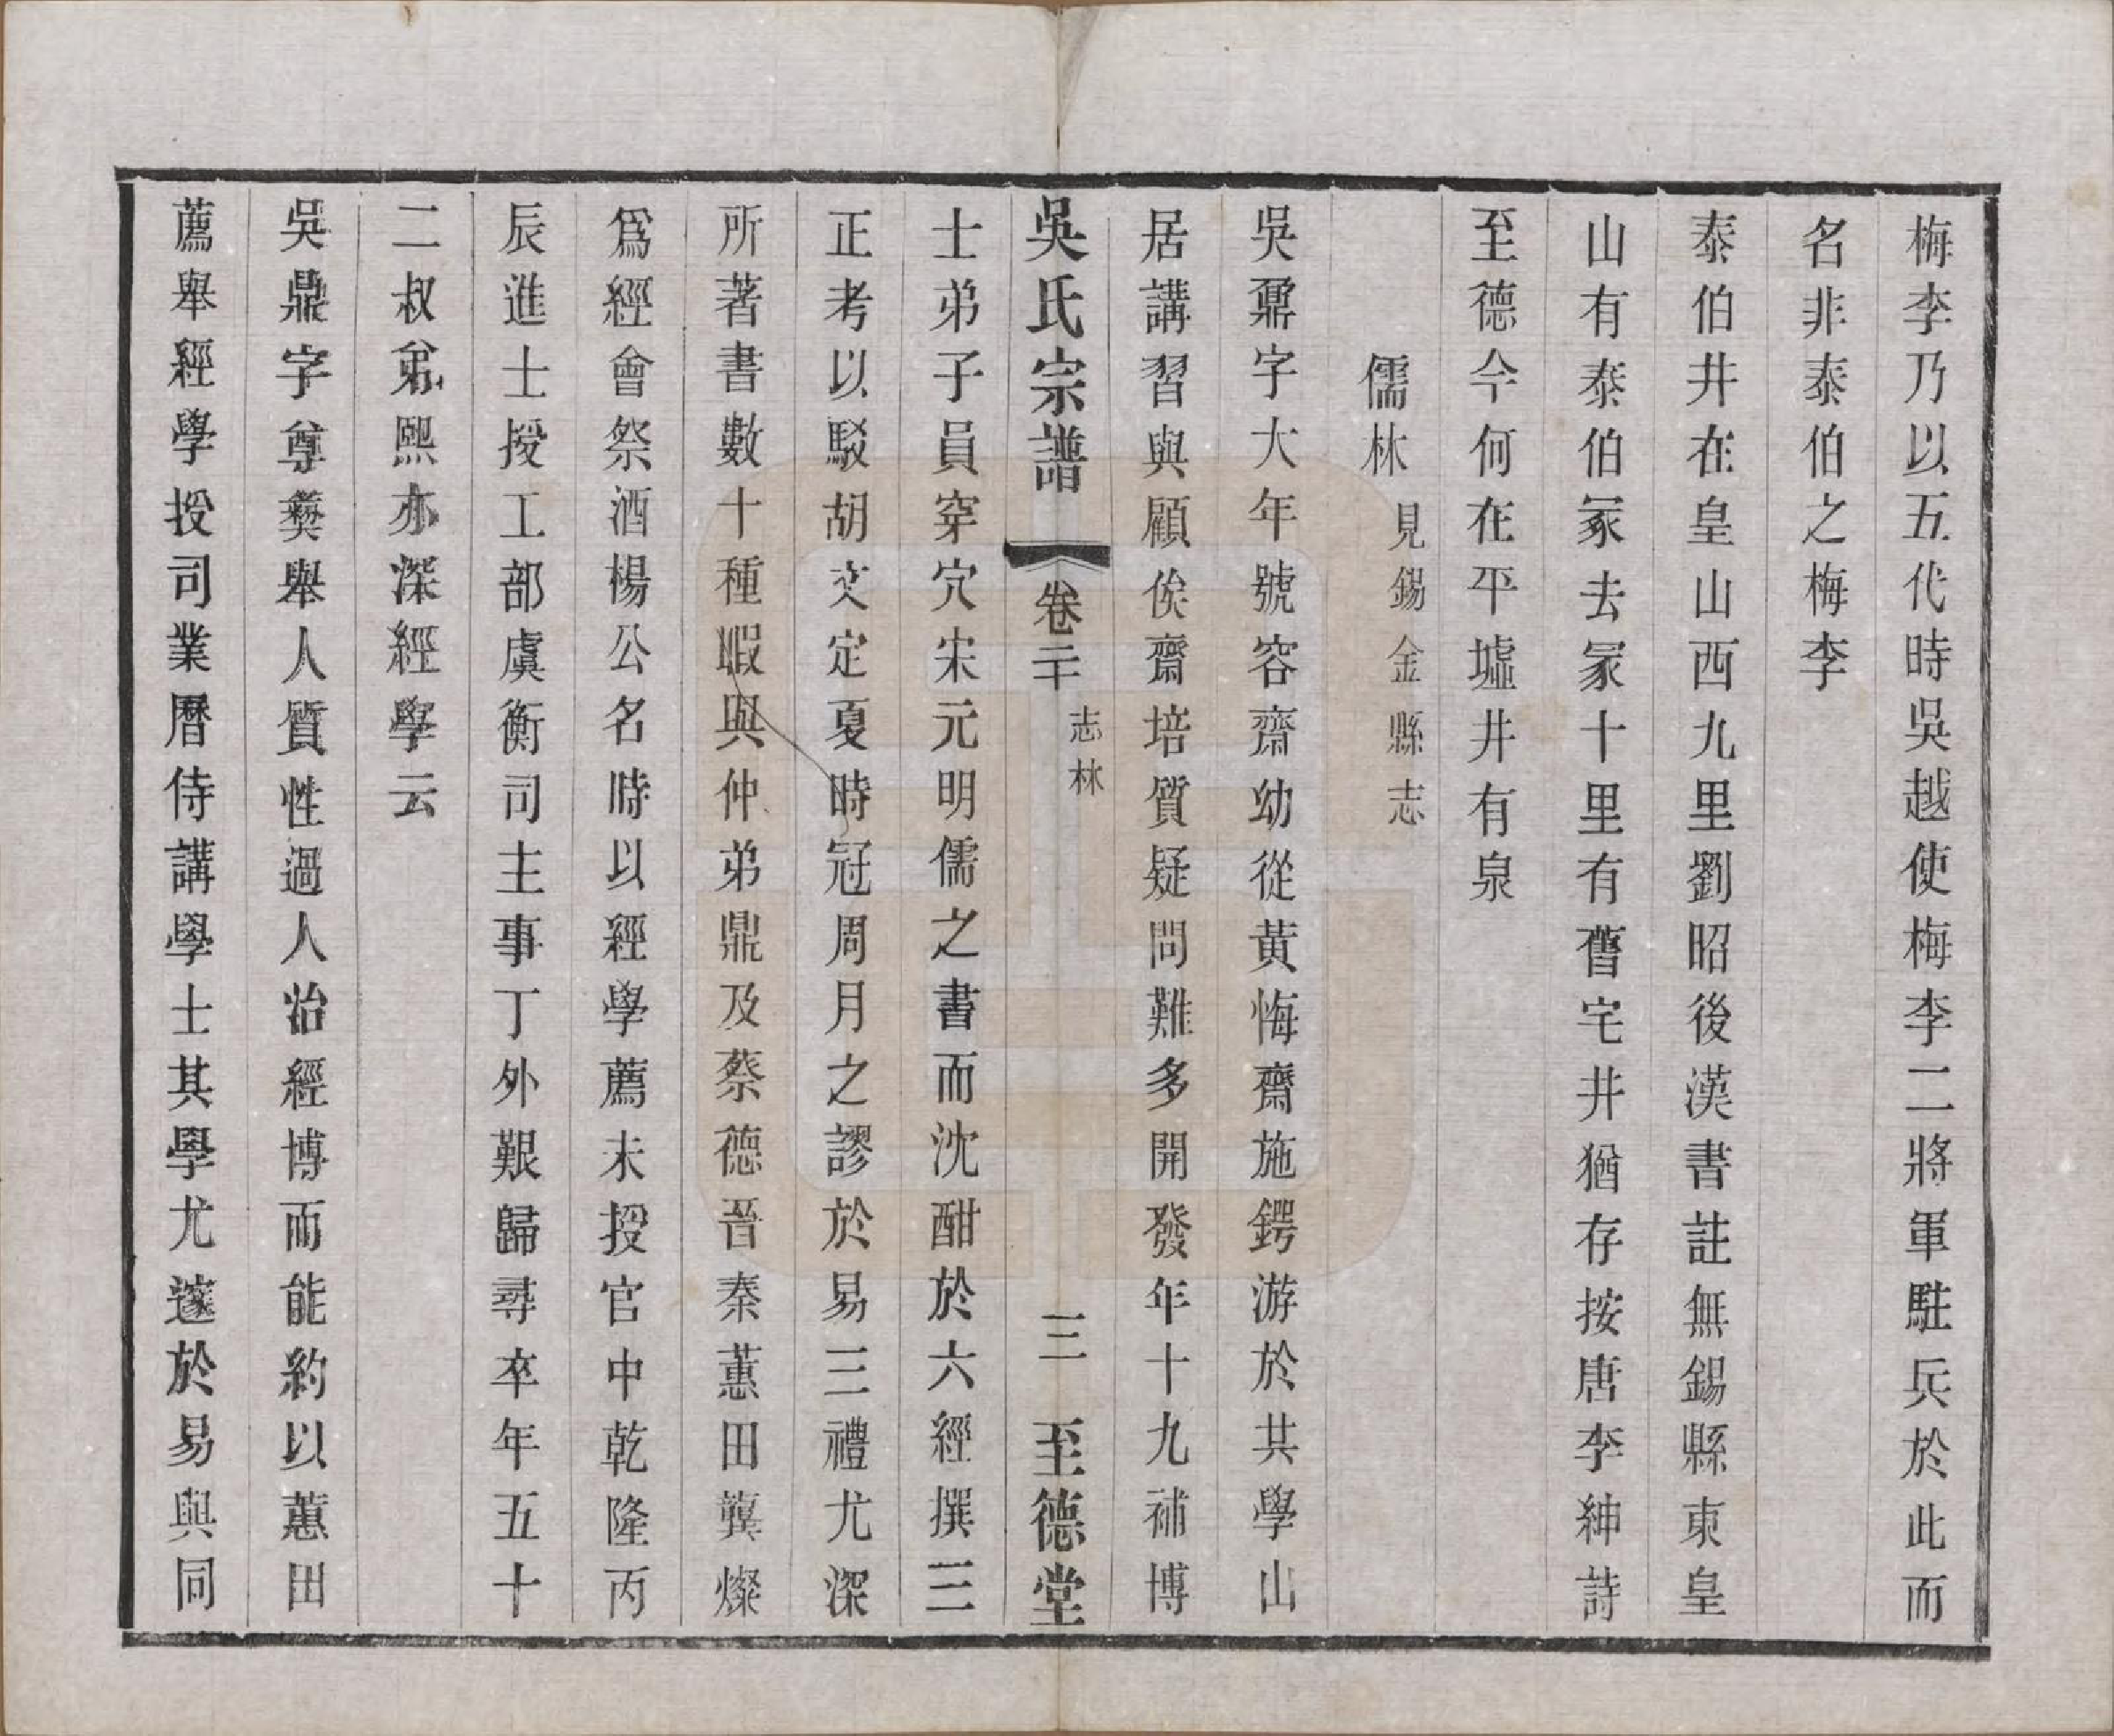 梅李乃以五代時吳越使梅李二將軍駐兵於此而
名非泰伯之梅李
泰伯井在皇山西九里劉昭後漢書註無錫縣東皇
山有泰伯冢去冢十里有舊宅井猶存按唐李紳詩
至德今何在平墟井有泉
儒林 見錫金縣志
吳鼐字大年號容齋幼從黃悔齋施鍔游於共學山
居講習與顧俟齋培質疑問難多開發年十九補博
吳氏宗譜 卷二十 志林 三 至德堂
士弟子員穿穴宋元明儒之書而沈酣於六經撰三
正考以駁胡文定夏時冠周月之謬於易三禮尤深
所著書數十種嘏與仲弟鼎及蔡德晉秦蕙田龔燦
爲經會祭酒楊公名時以經學薦未授官中乾隆丙
辰進士授工部虞衡司主事丁外艱歸尋卒年五十
二叔弟熙亦深經學云
吳鼎字尊彝舉人質性過人治經博而能約以蕙田
薦舉經學授司業曆侍講學士其學尤邃於易與同